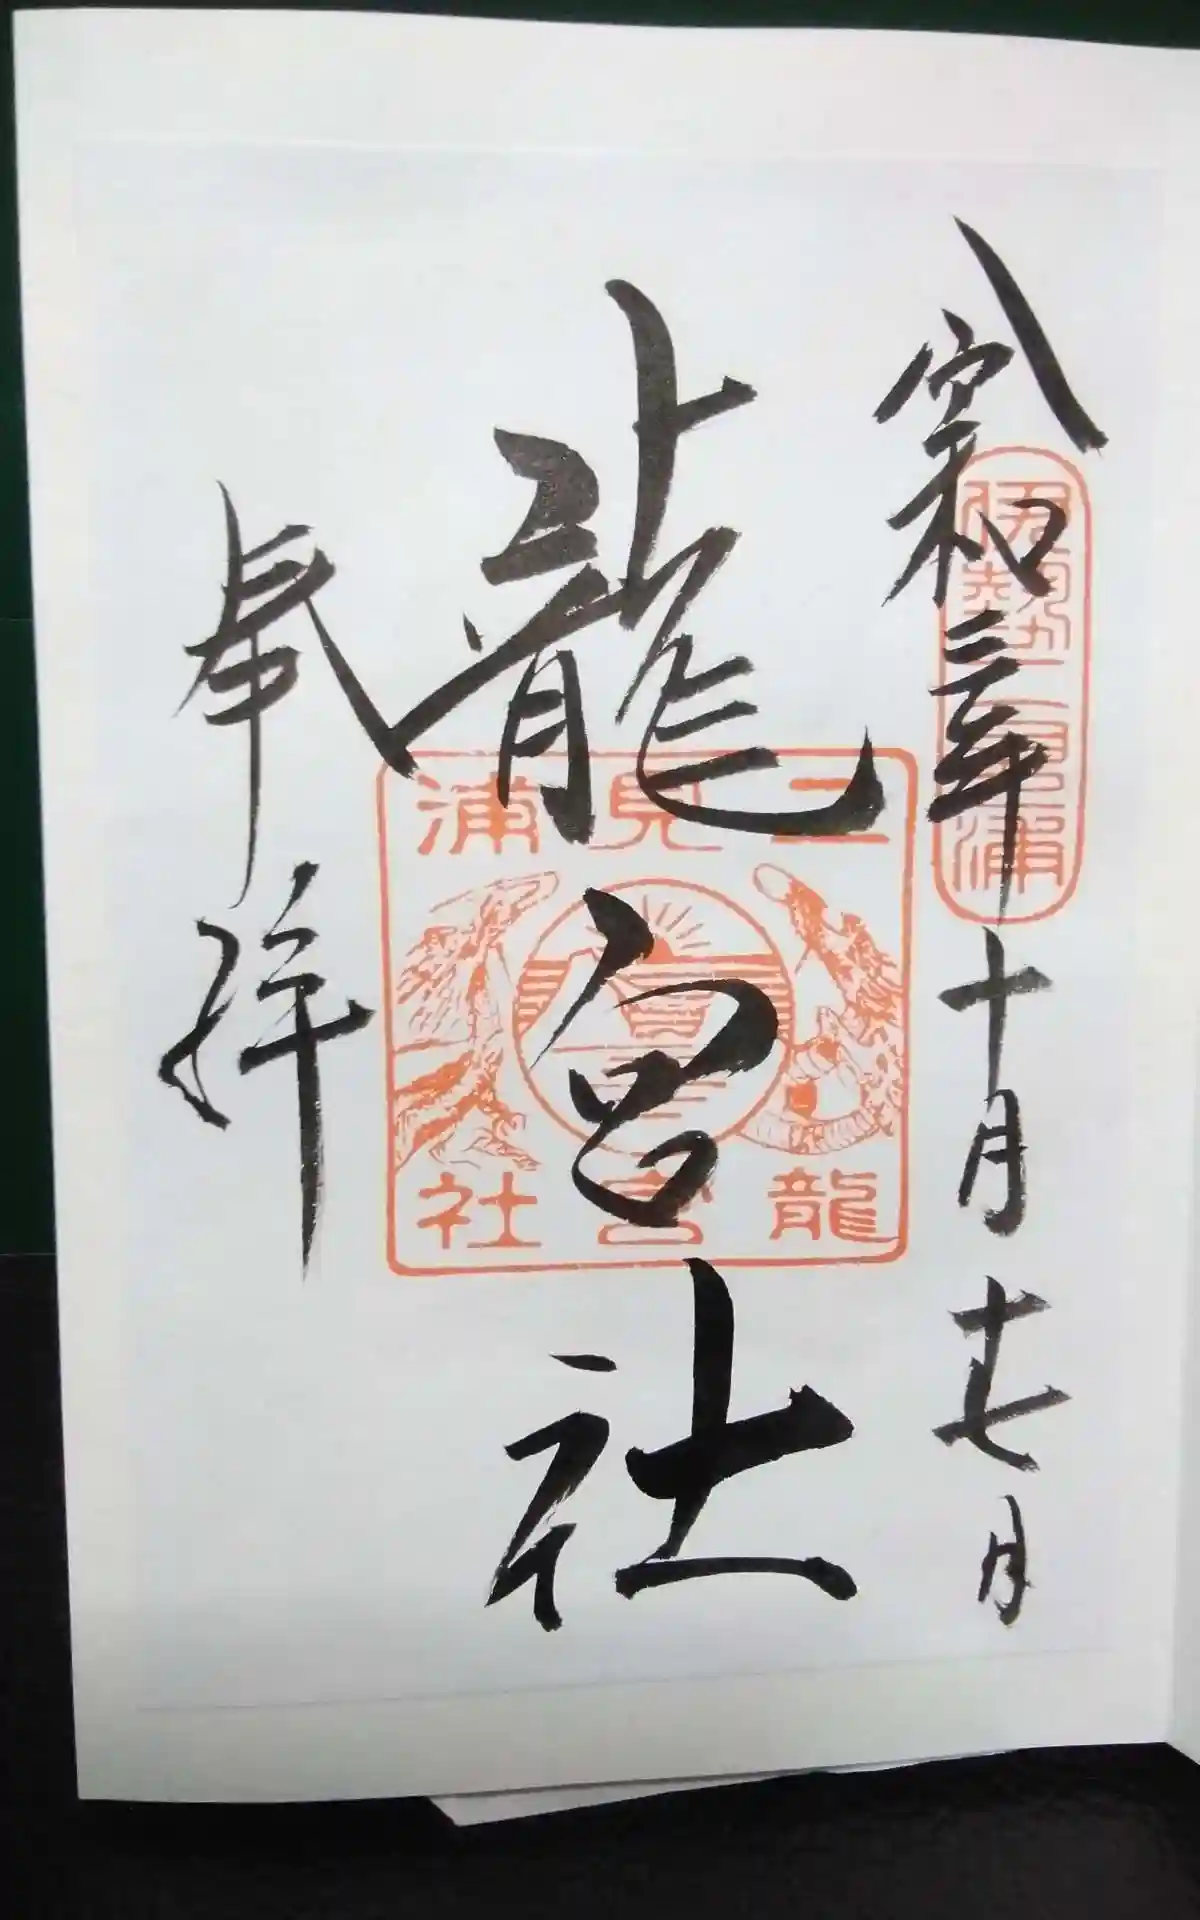 令和三年十月十七日
伊勢二見浦
龍宮社
二見浦
龍宮社
奉拝